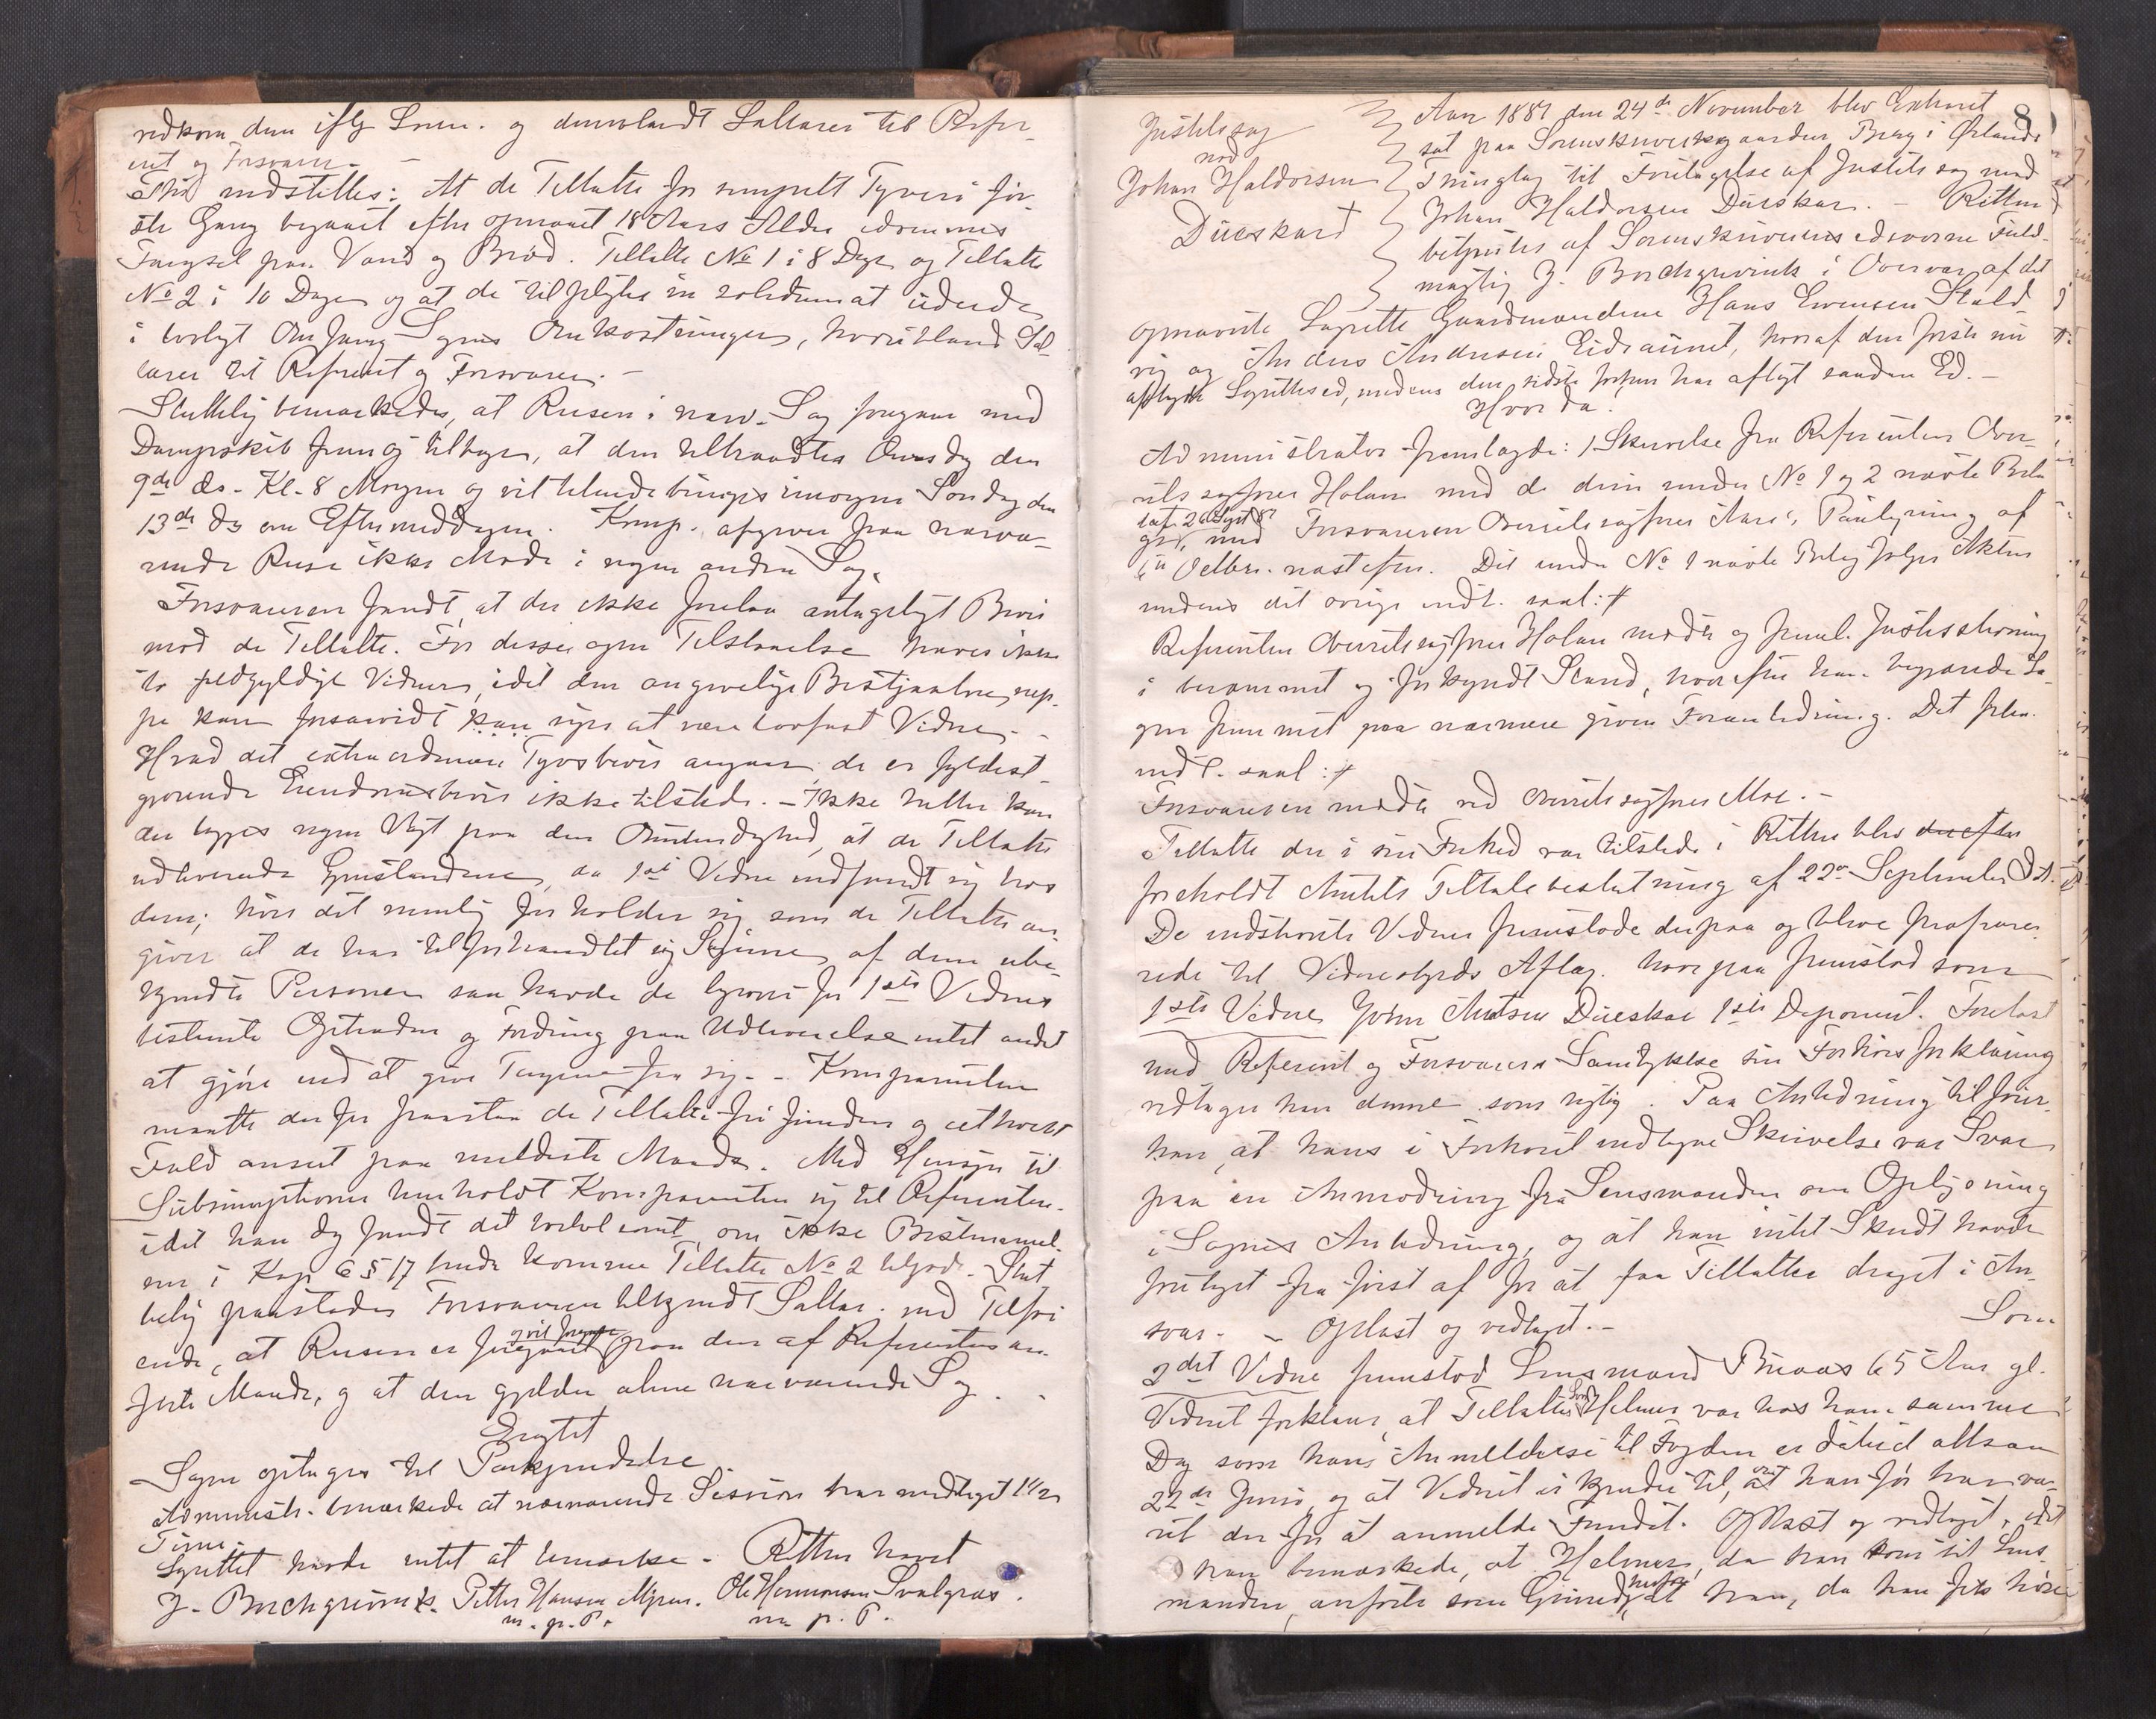 vedkom dem iflg Loven. og derunder blandt Sallarer til Refer-
ent og Forsvarer. —
Thi indstilles: At de Tiltalte for simpelt Tyveri før-
ste Gang begaaet efter opnaaet 18 Aars Alder idømmes
Fængsel paa Vand og Brød. Tiltalte No 1 i 8 Dage og Tiltalte
No 2 i 10 Dage og at de tilpligtes in solidum at udrede
i lovligt Omfang Sagens Omkostninger, hvoriblandt Sal-
larer til Referent og Forsvarer. —
Sluttelig bemærkedes, at Reisen i nærv. Sag foregaar med
Dampskib frem og tilbage, at den tiltraadtes Onsdag den
9de ds. Kl. 8 Morgen og vil tilendebringes imorgen Søndag den
13de ds om Eftermiddagen. Komp. afgiver paa nærvæ-
rende Reise ikke Møde i nogen anden Sag.
Forsvareren fandt, at der ikke forelaa antageligt Bevis
mod de Tiltalte. For disses egen Tilstaaelse haves ikke
to fuldgyldige Vidner, idet den angivelige Bestjaalne, nep-
pe kan forsaavidt kan siges at være lovfast Vidne. -
Hvad det extraordinære Tyvsbevis angaar, da er fyldest-
gjørende Eiendomsbevis ikke tilstede. — Ikke heller kan
der lægges nogen Vægt paa den Omstændighed, at de Tiltalte
udleverede Gjenstandene, da 1ste Vidne indfandt sig hos
dem; hvis det nemlig forholder sig som de Tiltalte an-
giver at de har tilforhandlet sig Skjinnene af dem ube-
kjendte Personer saa havde de ligeoverfor 1ste Vidnes
bestemte Optræden og Fordring paa Udleverelse intet andet
at gjøre end at give Tingene fra sig. - Komparenten
maatte derfor paastaa de Tiltalte frifundne og i ethvert
Fald anseet paa mildeste Maade. Med Hensyn til
Subsumptionen henholdt Komparenten sig til Referenten.
idet han dog fandt det tvivlsomt, om ikke Bestemmel-
sen i Kap 6 § 17 burde komme Tiltalte No 2 tilgode. Slut-
telig paastodes Forsvareren tilkjendt Sallar. med Tilføi-
ende, at Reisen er foregaaet og vil foregaa paa den af Referenten an-
førte Maade, og at den gjelder alene nærværende Sag. -
Eragtet
Sagen optages til Paakjendelse
Administr. bemærkede at nærværende Session har medtaget 1½
Time.
Lagrettet havde intet at bemærke. Retten hævet
J. Borchgrevink. Petter Hansen Mjøen. Ole Hermansen Svalgraa.
m. p. P. m. p. P.
8
Justitssag
mod
Johan Haldorsen
Dueskard
Aar 1887 den 24de November blev Extraret
sat paa Sorenskrivergaarden Berg i Ørlands
Thinglag til Foretagelse af Justitssag mod
Johan Haldorsen Dueskar. — Retten
betjentes af Sorenskriverens edsvorne Fuld-
mægtig J. Borchgrevink i Overvær af det
opnævnte Lagrette Gaardmændene Hans Evensen Stald-
vig og Anders Andersen Eidsaunet, hvoraf den første nu
aflagde Lagrettesed, medens den sidste forhen har aflagt saadan Ed. —
Hvor da:
Administrator fremlagde: 1 Skrivelse fra Referenten Over-
retssagfører Holan med de deri under No 1 og 2 nævte Bila-
ger, med Forsvareren Overretssagfører Aars', Paategning af
6te Oktbr. næstefter. Det under No 1 nævte Bilag følger Akten
medens det øvrige indt. saal: ⧧
Referenten Overretssagfører Holan mødte og freml. Justitsstævning
i berammet og forkyndt Stand, hvorefter han begjærede Sa-
gen fremmet paa nærmere given Foranledning. Det frem.
indt. saal: ⧧
Forsvareren mødte ved Overretssagfører Moe. —
Tiltalte der i sin Frihed var tilstede i Retten blev derefter
foreholdt Amtets Tiltalebeslutning af 22de September d. A.
De indstevnte Vidner fremstode derpaa og bleve præpare-
rede til Vidnesbyrds Aflæg. hvorpaa fremstod som
1ste Vidne Jørn Antsen Dueskar 1ste Deponent. Forelæst
med Referent og Forsvarers Samtykke sin Forhørsforklaring
vedtager han denne som rigtig. Paa Anledning tilføier
han, at hans i Forhøret indtagne Skrivelse var Svar
paa en Anmodning fra Lensmanden om Oplysning
i Sagens Anledning, og at han intet Skridt havde
foretaget fra først af for at faa Tiltalte draget i An-
svar. - Oplæst og vedtaget. —
Som
2det Vidne fremstod Lensmand Braas 65 Aar gl.
Vidnet forklarer, at Tiltaltes Søn Helmer var hos ham samme
Dag som hans Anmeldelse til Fogden er dateret altsaa
22de Juni, og at Vidnet er kjendt til, at han før har væ-
ret der for at anmelde Fundet. Oplæst og vedtaget, idet
han bemærkede, at Helmer, da han kom til Lens-
manden, anførte som Grund hvorfor at han, da han fik høre